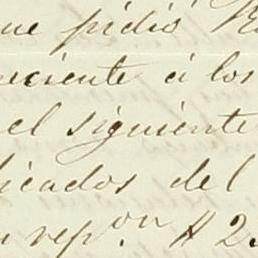 ue pidió
eciente á los
el siguiente
icados del
rep.on $ 2